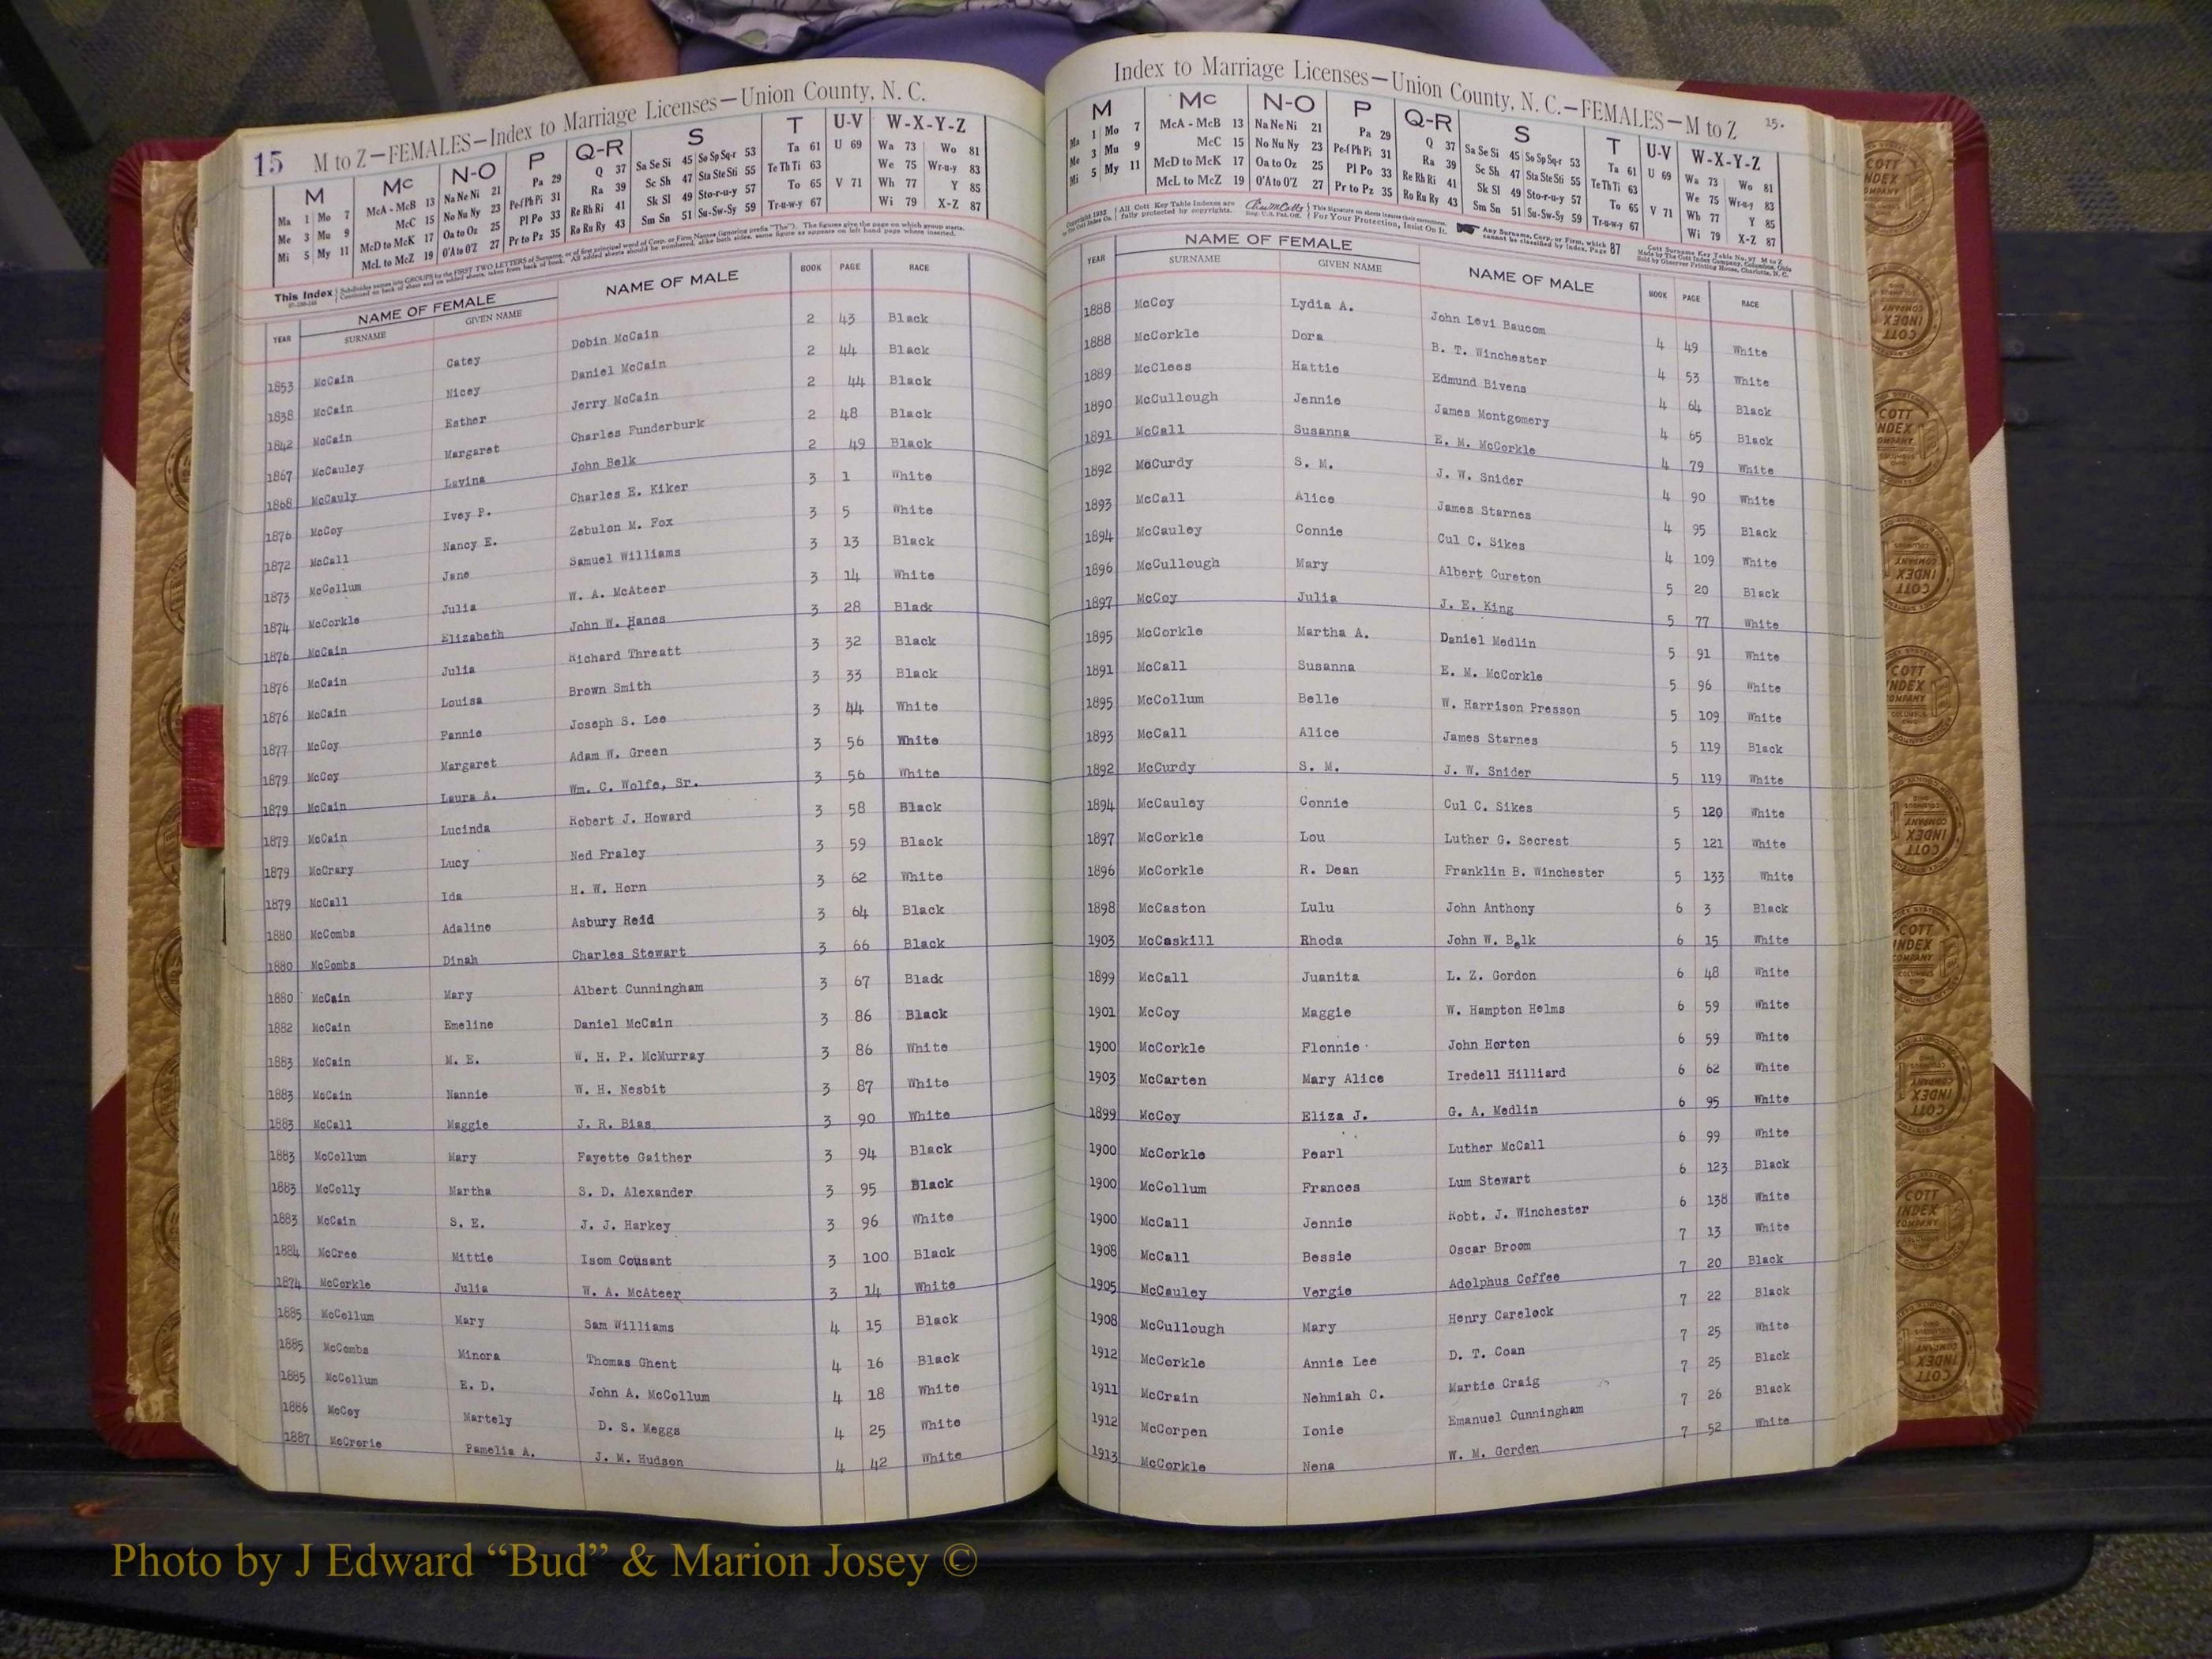 15 M to Z—FEMALES—Index to Marriage Licenses—Union County, N. C.
M Mc N-O P Q-R S T U-V W-X-Y-Z
Ma 1 Mo 7 McA - McB 13 Na Ne Ni 21 Pa 29 Q 37 Sa Se Si 45 So Sp Sq-r 53 Ta 61 U 69 Wa 73 Wo 81
Me 3 Mu 9 McC 15 No Nu Ny 23 Pe-f Ph Pi 31 Ra 39 Sc Sh 47 Sta Ste Sti 55 Te Th Ti 63 We 75 Wr-u-y 83
Mi 5 My 11 McD to McK 17 Oa to Oz 25 Pl Po 33 Re Rh Ri 41 Sk Sl 49 Sto-r-u-y 57 To 65 V 71 Wh 77 Y 85
McL to McZ 19 O'A to O'Z 27 Pr to Pz 35 Ro Ru Ry 43 Sm Sn 51 Su-Sw-Sy 59 Tr-u-w-y 67 Wi 79 X-Z 87
This Index Subdivides names into GROUPS by the FIRST TWO LETTERS of Surname, or of first principal word of Corp. or Firm Names (ignoring prefix "The"). The figures give the page on which group starts.
Continued on back of sheet and on added sheets, taken from back of book. All added sheets should be numbered, alike both sides, same figure as appears on left hand page where inserted.
YEAR NAME OF FEMALE SURNAME GIVEN NAME NAME OF MALE BOOK PAGE RACE
1853 McCain Catey Dobin McCain 2 43 Black
1838 McCain Nicey Daniel McCain 2 44 Black
1842 McCain Esther Jerry McCain 2 44 Black
1867 McCauley Margaret Charles Funderburk 2 48 Black
1868 McCauly Lavina John Belk 2 49 Black
1876 McCoy Ivey P. Charles E. Kiker 3 1 White
1872 McCall Nancy E. Zebulon M. Fox 3 5 White
1873 McCollum Jane Samuel Williams 3 13 Black
1874 McCorkle Julia W. A. McAteer 3 14 White
1876 McCain Elizabeth John W. Hanes 3 28 Black
1876 McCain Julia Richard Threatt 3 32 Black
1876 McCain Louisa Brown Smith 3 33 Black
1877 McCoy Fannie Joseph S. Lee 3 44 White
1879 McCoy Margaret Adam W. Green 3 56 White
1879 McCain Laura A. Wm. C. Wolfe, Sr. 3 56 White
1879 McCain Lucinda Robert J. Howard 3 58 Black
1879 McCrary Lucy Ned Fraley 3 59 Black
1879 McCall Ida H. W. Horn 3 62 White
1880 McCombs Adaline Asbury Reid 3 64 Black
1880 McCombs Dinah Charles Stewart 3 66 Black
1880 McCain Mary Albert Cunningham 3 67 Black
1882 McCain Emeline Daniel McCain 3 86 Black
1883 McCain M. E. W. H. P. McMurray 3 86 White
1883 McCain Nannie W. H. Nesbit 3 87 White
1883 McCall Maggie J. R. Bias 3 90 White
1883 McCollum Mary Fayette Gaither 3 94 Black
1883 McColly Martha S. D. Alexander 3 95 Black
1883 McCain S. E. J. J. Harkey 3 96 White
1884 McCree Mittie Isom Cousant 3 100 Black
1874 McCorkle Julia W. A. McAteer 3 14 White
1885 McCollum Mary Sam Williams 4 15 Black
1885 McCombs Minora Thomas Ghent 4 16 Black
1885 McCollum E. D. John A. McCollum 4 18 White
1886 McCoy Martely D. S. Meggs 4 25 White
1887 McCrorie Pamelia A. J. M. Hudson 4 42 White
Index to Marriage Licenses—Union County, N. C.—FEMALES—M to Z 15.
M Mc N-O P Q-R S T U-V W-X-Y-Z
Ma 1 Mo 7 McA - McB 13 Na Ne Ni 21 Pa 29 Q 37 Sa Se Si 45 So Sp Sq-r 53 Ta 61 U 69 Wa 73 Wo 81
Me 3 Mu 9 McC 15 No Nu Ny 23 Pe-f Ph Pi 31 Ra 39 Sc Sh 47 Sta Ste Sti 55 Te Th Ti 63 We 75 Wr-u-y 83
Mi 5 My 11 McD to McK 17 Oa to Oz 25 Pl Po 33 Re Rh Ri 41 Sk Sl 49 Sto-r-u-y 57 To 65 V 71 Wh 77 Y 85
McL to McZ 19 O'A to O'Z 27 Pr to Pz 35 Ro Ru Ry 43 Sm Sn 51 Su-Sw-Sy 59 Tr-u-w-y 67 Wi 79 X-Z 87
Copyright 1932 by The Cott Index Co. All Cott Key Table Indexes are fully protected by copyrights. Reg. U.S. Pat. Off. This Signature on sheets insures their correctness. For Your Protection, Insist On It. Any Surname, Corp. or Firm, which cannot be classified by Index, Page 87 Cott Surname Key Table No. 97 M to Z Made by The Cott Index Company, Columbus, Ohio Sold by Observer Printing House, Charlotte, N. C.
YEAR NAME OF FEMALE SURNAME GIVEN NAME NAME OF MALE BOOK PAGE RACE
1888 McCoy Lydia A. John Levi Baucom 4 49 White
1888 McCorkle Dora B. T. Winchester 4 53 White
1889 McClees Hattie Edmund Bivens 4 64 Black
1890 McCullough Jennie James Montgomery 4 65 Black
1891 McCall Susanna E. M. McCorkle 4 79 White
1892 McCurdy S. M. J. W. Snider 4 90 White
1893 McCall Alice James Starnes 4 95 Black
1894 McCauley Connie Cul C. Sikes 4 109 White
1896 McCullough Mary Albert Cureton 5 20 Black
1897 McCoy Julia J. E. King 5 77 White
1895 McCorkle Martha A. Daniel Medlin 5 91 White
1891 McCall Susanna E. M. McCorkle 5 96 White
1895 McCollum Belle W. Harrison Presson 5 109 White
1893 McCall Alice James Starnes 5 119 Black
1892 McCurdy S. M. J. W. Snider 5 119 White
1894 McCauley Connie Cul C. Sikes 5 120 White
1897 McCorkle Lou Luther G. Secrest 5 121 White
1896 McCorkle R. Dean Franklin B. Winchester 5 133 White
1898 McCaston Lulu John Anthony 6 3 Black
1903 McCaskill Rhoda John W. Belk 6 15 White
1899 McCall Juanita L. Z. Gordon 6 48 White
1901 McCoy Maggie W. Hampton Helms 6 59 White
1900 McCorkle Flonnie John Horton 6 59 White
1903 McCarten Mary Alice Iredell Hilliard 6 62 White
1899 McCoy Eliza J. G. A. Medlin 6 95 White
1900 McCorkle Pearl Luther McCall 6 99 White
1900 McCollum Frances Lum Stewart 6 123 Black
1900 McCall Jennie Robt. J. Winchester 6 138 White
1908 McCall Bessie Oscar Broom 7 13 White
1905 McCauley Vergie Adolphus Coffee 7 20 Black
1908 McCullough Mary Henry Carelock 7 22 Black
1912 McCorkle Annie Lee D. T. Coan 7 25 White
1911 McCrain Nehmiah C. Martie Craig 7 25 Black
1912 McCorpen Ionie Emanuel Cunningham 7 26 Black
1913 McCorkle Nena W. M. Gorden 7 52 White
Photo by J Edward “Bud” & Marion Josey ©